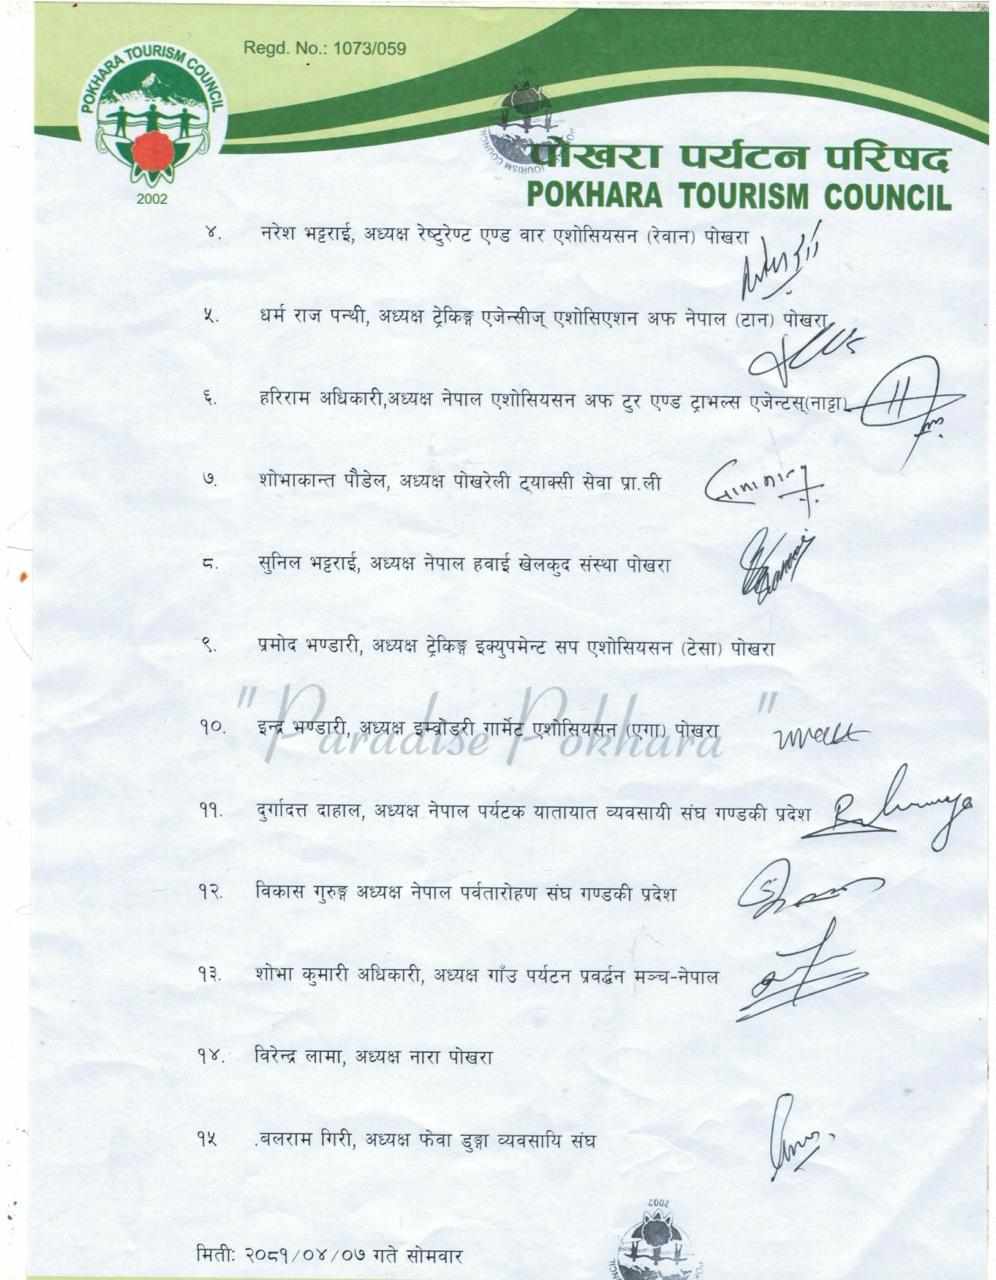 Regd. No.: 1073/059
POKHARA TOURISM COUNCIL
2002
पोखरा पर्यटन परिषद
POKHARA TOURISM COUNCIL
४. नरेश भट्टराई, अध्यक्ष रेष्टुरेण्ट एण्ड वार एशोसियसन (रेवान) पोखरा
५. धर्म राज पन्थी, अध्यक्ष ट्रेकिङ्ग एजेन्सीज् एशोसिएशन अफ नेपाल (टान) पोखरा
६. हरिराम अधिकारी,अध्यक्ष नेपाल एशोसियसन अफ टुर एण्ड ट्राभल्स एजेन्टस्(नाट्टा)
७. शोभाकान्त पौडेल, अध्यक्ष पोखरेली ट्याक्सी सेवा प्रा.ली
८. सुनिल भट्टराई, अध्यक्ष नेपाल हवाई खेलकुद संस्था पोखरा
९. प्रमोद भण्डारी, अध्यक्ष ट्रेकिङ्ग इक्युपमेन्ट सप एशोसियसन (टेसा) पोखरा
"Paradise Pokhara"
१०. इन्द्र भण्डारी, अध्यक्ष इम्ब्रोडरी गार्मेट एशोसियसन (एगा) पोखरा
११. दुर्गादत्त दाहाल, अध्यक्ष नेपाल पर्यटक यातायात व्यवसायी संघ गण्डकी प्रदेश
१२. विकास गुरुङ्ग अध्यक्ष नेपाल पर्वतारोहण संघ गण्डकी प्रदेश
१३. शोभा कुमारी अधिकारी, अध्यक्ष गाँउ पर्यटन प्रवर्द्धन मञ्च-नेपाल
१४. विरेन्द्र लामा, अध्यक्ष नारा पोखरा
१५ .बलराम गिरी, अध्यक्ष फेवा डुङ्गा व्यवसायि संघ
2002
मितीः २०८१/०४/०७ गते सोमवार